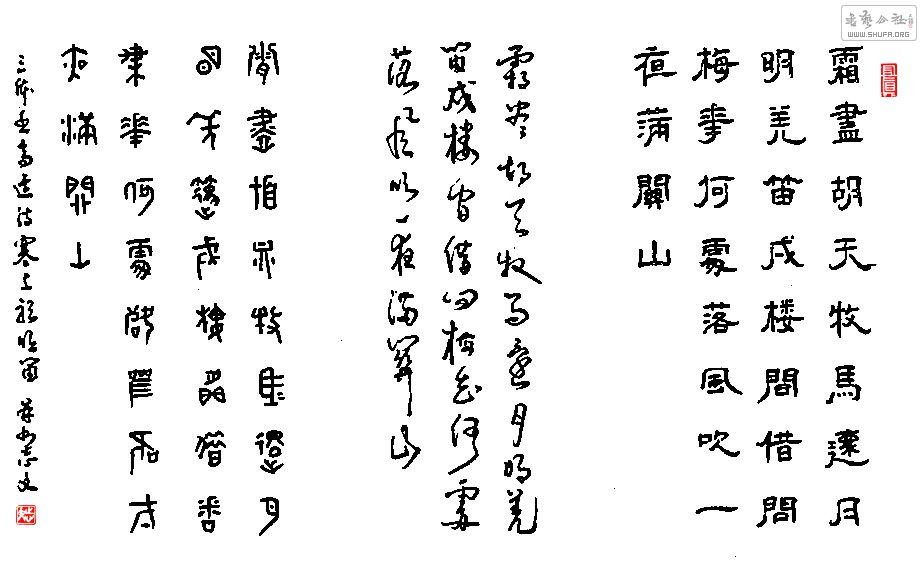 书艺公社
WWW.SHUFA.ORG
霜盡胡天牧馬還月
明羌笛戍楼間借問
梅華何處落風吹一
夜满關山
霜尽胡天牧马還月明羌
笛戍楼間借问梅花何處
落风吹一夜满關山
霜盡胡天牧馬還月
明羌笛戍樓間借問
梅華何處落風吹一
夜滿關山
三體書高适诗塞上聽吹笛 志文